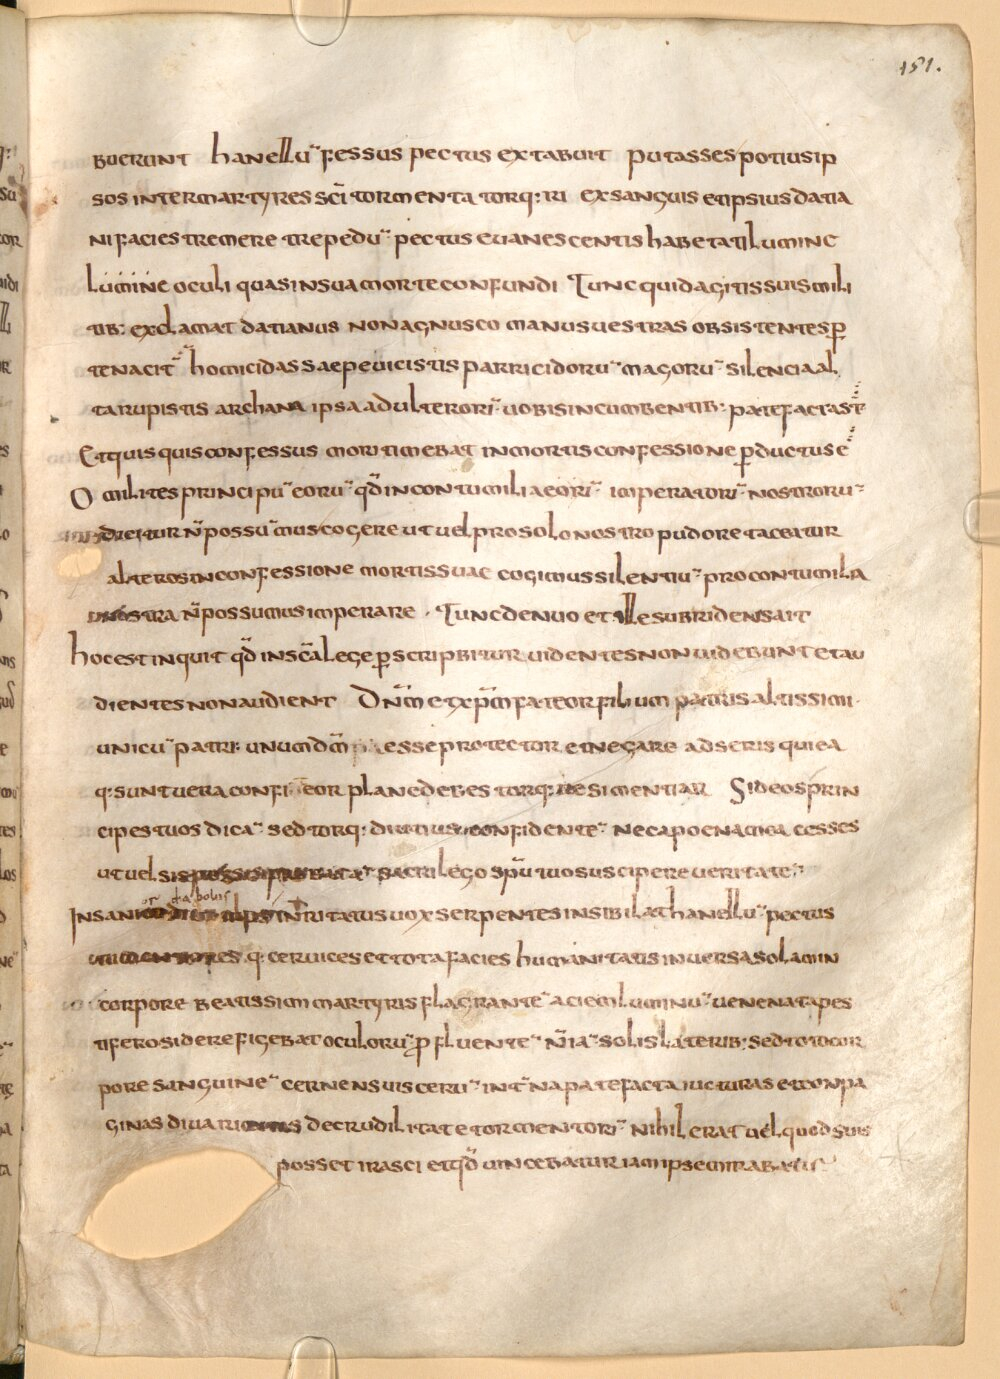 151.
buerunt hanellu¨ fessus pectus extabuit putasses potius ip
sos inter martyres sc̄i tormenta torq:ri exsanguis et ipsius datia
ni facies tremere trepedu¨ pectus euanescentis habetati lumine
lumine oculi quasi in sua morte confundi Tunc quid agitis suis mili
tib: exclamat datianus non agnusco manus uestras obsistentes ꝑ
tenacit¨ homicidas saepe uicistis parricidoru¨ magoru¨ silencia al
ta rupistis archana ipsa adulterori¨ uobis incumbentib: patefacta st¨
Et quisquis confessus mori timebat in mortis confessione ꝑductus e¨
O milites principu¨ eoru¨ qd̄ in contumiliae ori¨ imperatori¨ nostroru¨
dicitur n̄ possu¨mus cogere ut uel pro solo nostro pudore taceatur
alteros in confessione mortis suae cogimus silentiu¨ pro contumilia
nostra n̄ possumus imperare . Tunc denuo et ille subridens ait
hoc est inquit qd̄ in sc̄a lege ꝑscripbitur uidentes non uidebunt et au
dientes non audient Dn̄m et xp̄m fateor filium patris altissimi
unicu¨ patri: unum dm̄ esse protector et negare adseris qui ea
q: sunt uera confi eor plane debes torq: re si mentiar Si deos prin
cipes tuos dica¨ sed torq: diutius confidente¨ nec a poena mea cesses
ut uel sis sacrilego spū tuo suscipere ueritate¨
or diabolus
Insani in ritatus uox serpentes insibilat hanellu¨ pectus
q: ceruices et tota facies humanitatis inuersa sola min
corpore beatissim martyris flagrante¨ aciem luminu¨ uenenata pes
tifero sidere figebat oculoru¨ ꝓfluente¨ n̄ ia¨ solis laterib: sed toto cor
pore sanguine¨ cernens uisceru¨ int¨na patefacta iucturas et conpa
ginas diuari decrudilitate tormentori¨ nihil erat uel quod suis
posset irasci et qd̄ uincebatur iam ipse mirabatur